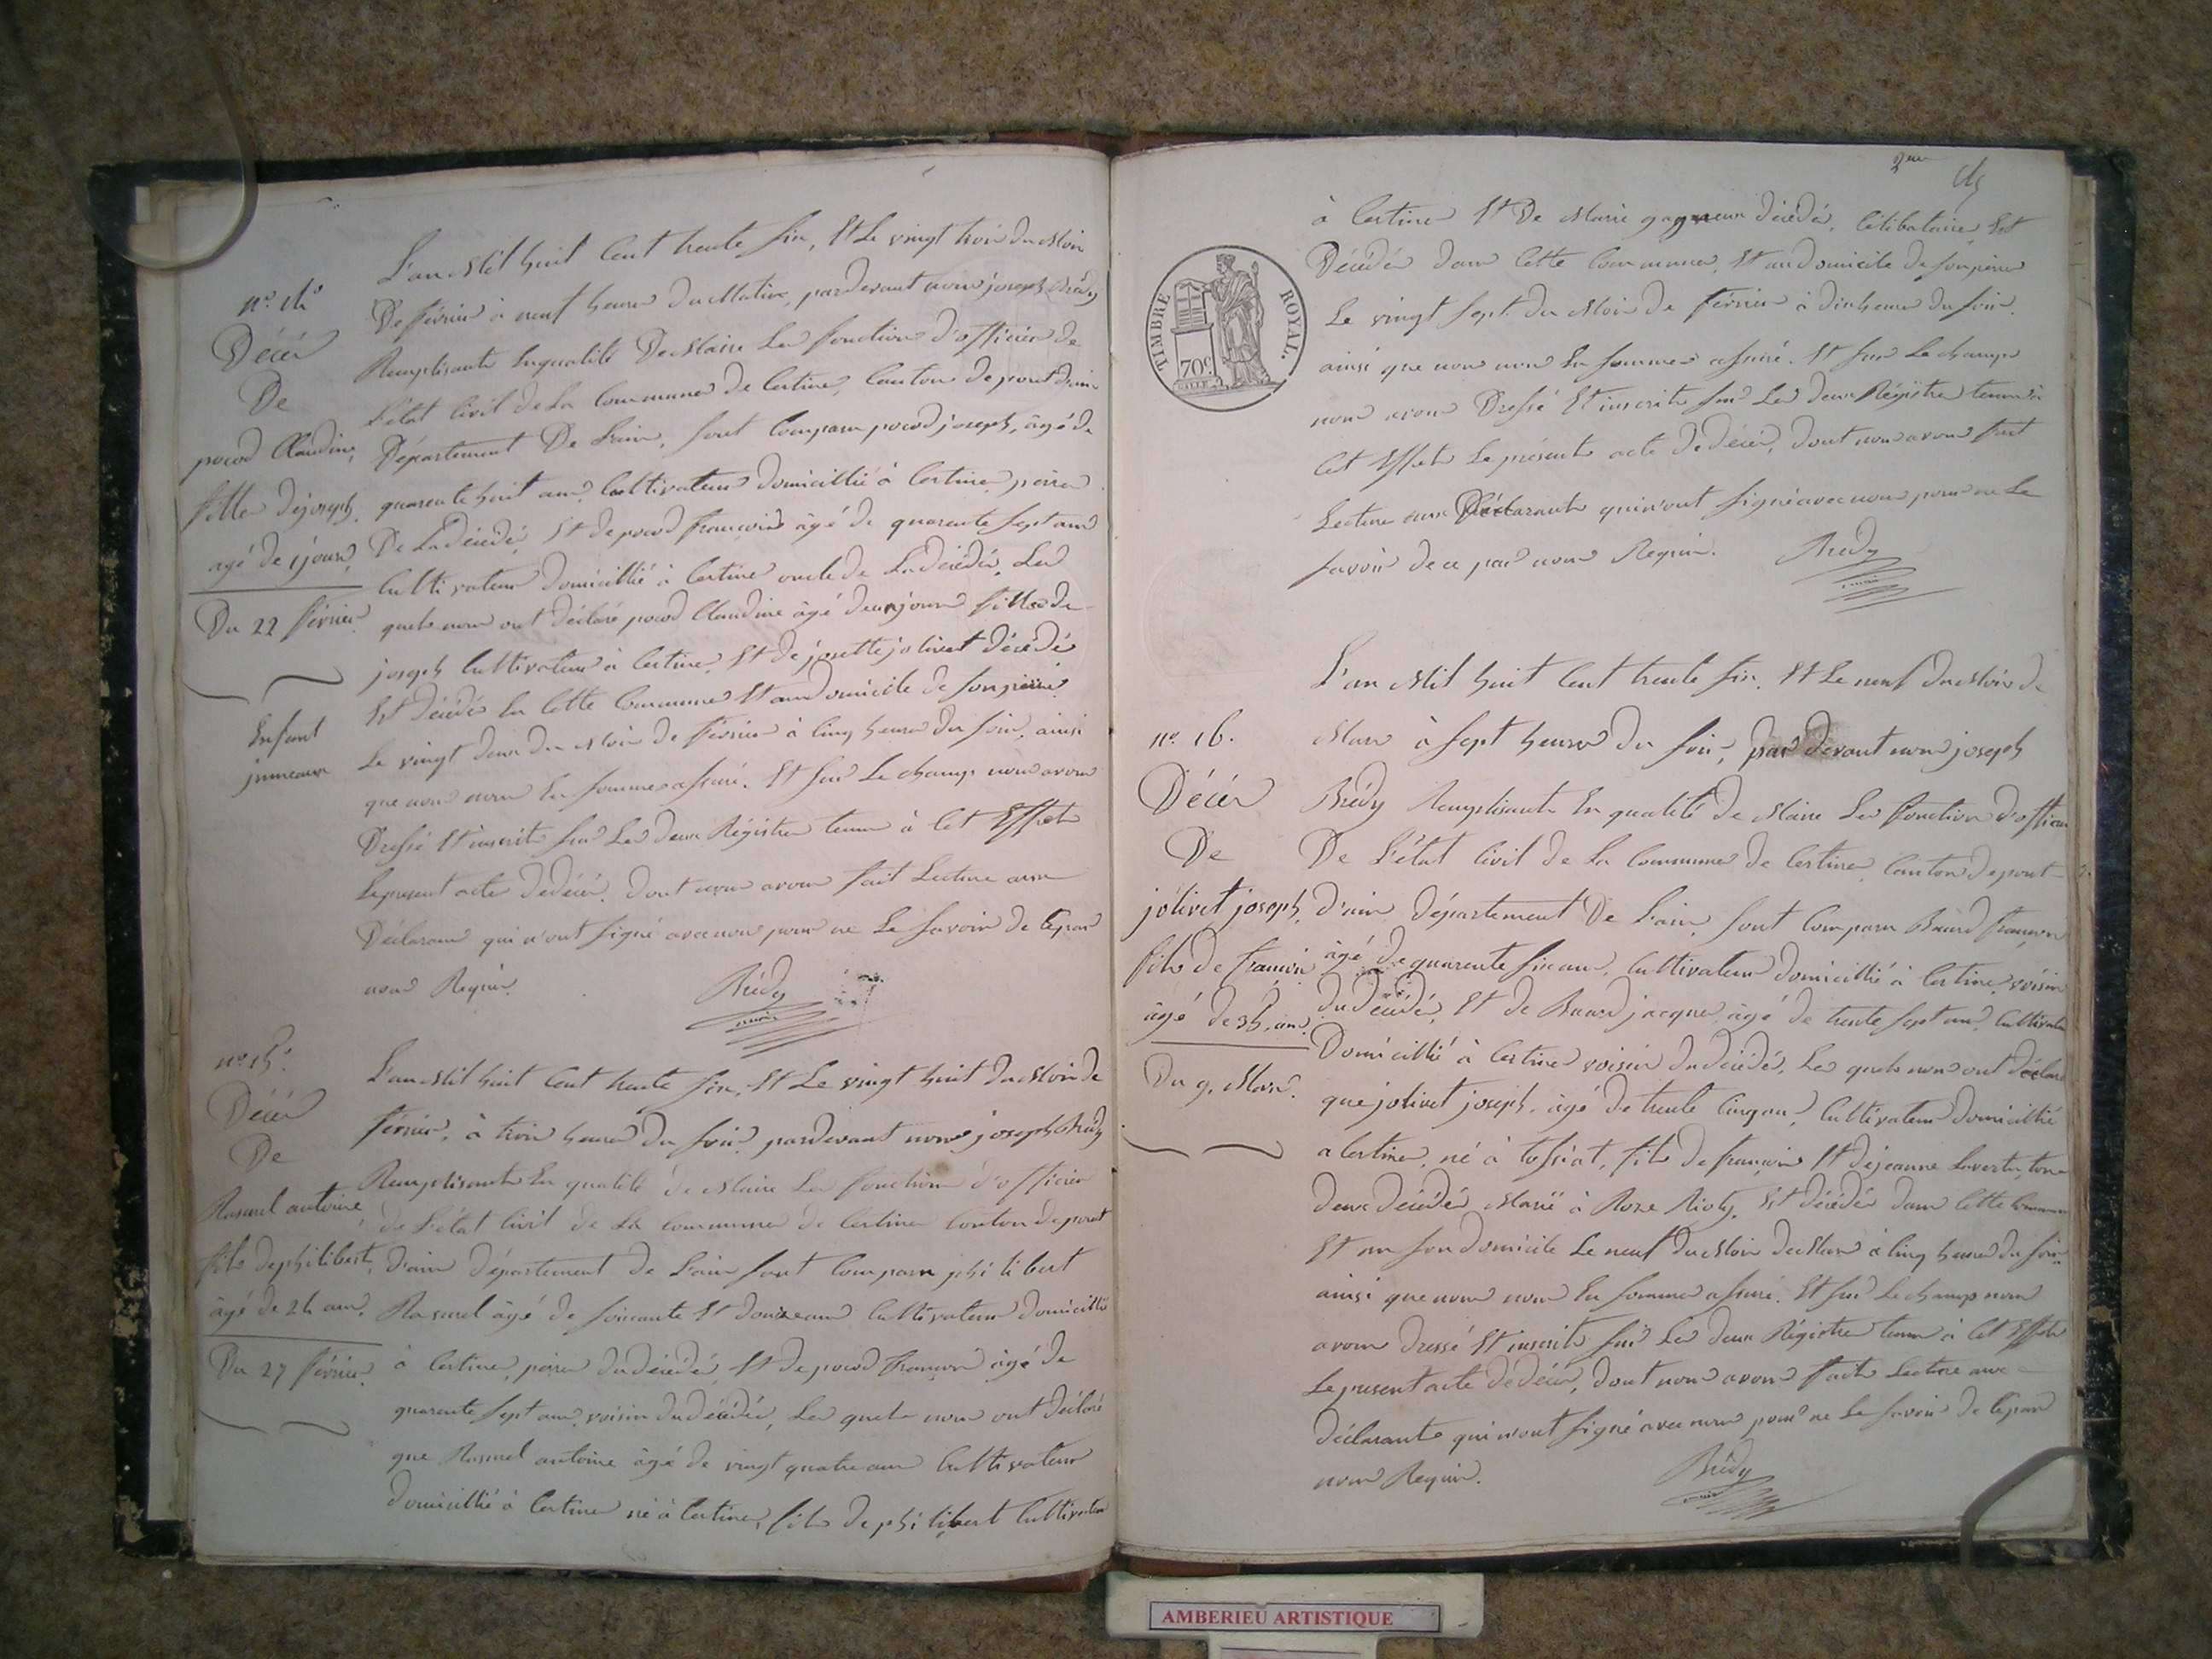 L'an Mil huit Cent trente Six, Et Le vingt trois du Mois
De février à neuf heures du Matin, pardevant nous joseph Brédy
Remplisants En qualité De Maire Les fonctions d'officier de
L'état Civil de La Commune de Certines, Canton de pont d'ain
Département De L'ain, Sont Comparu pocod joseph, âgé de
quarente huit ans, Cultivateur domicillié à Certines, père
De La décédé, Et de pocod françois âgé de quarente Sept ans
Cultivateur domicillié à Certines oncle de La décédé, Les
quels nous ont déclaré pocod Claudine âgé de un jours fille de
joseph Cultivateur à Certines, Et de josette jolivet décédé
Est décédé En Cette Commune Et au domicile de Son père
Le vingt deux du Mois de février à Cinq heures du Soir, ainsi
que nous nous En Sommes assuré. Et Sur Le champ nous avons
Dressé Et inscrit Sur Les deux Régistres tenus à Cet Effet
Le present acte de décès, dont nous avons fait Lecture aux
Déclarans qui n'ont Signé avec nous pour ne Le Savoir de Ce par
nous Requis.
Brédy
maire
n.° 14.
Décès
De
pocod Claudine,
fille de joseph,
agé de 1 jours,
Du 22 février.
Enfant
jumeaux
n.° 15.
Décès
De
Rasurel antoine,
fils de philibert,
âgé de 24 ans.
Du 27 février.
L'an Mil huit Cent trente Six, Et Le vingt huit du Mois de
février, à trois heures du Soir, pardevant nous joseph Brédy
Remplisants En qualité de Maire Les fonctions d'officier
de L'état Civil de La commune de Certines Canton de pont
d'ain département de L'ain Sont Comparu philibert
Rasurel âgé de Soixante Et douze ans Cultivateur domicillié
à Certines, père du décédé, Et de pocod françois âgé de
quarente Sept ans, voisin du décédé, Les quels nous ont déclaré
que Rasurel antoine âgé de vingt quatre ans Cultivateur
domicillié à Certines né à Certines, fils de philibert Cultivateur
2me
à Certines Et De Marie gagneux décédé, Célibataire, Est
Décédé dans Cette Commune, Et au domicile de Son père
Le vingt Sept du Mois de février à dix heures du Soir.
ainsi que nous nous En Sommes assuré. Et Sur Le champ
nous avons Dressé Et inscrit Sur Les deux Régistres tenus à
Cet Effet Le présent acte de décès, dont nous avons fait
Lecture aux Déclarants qui n'ont Signé avec nous pour ne Le
Savoir de ce par nous Requis.
Brédy
maire
TIMBRE ROYAL.
70c.
n.° 16.
Décès
De
jolivet joseph,
fils de françois
âgé de 35. ans.
Du 9. Mars.
L'an Mil huit Cent trente Six, Et Le neuf du Mois de
Mars à Sept heures du Soir, par devant nous joseph
Brédy Remplisants En qualité de Maire Les fonctions d'officier
De L'état Civil de La Commune de Certines, Canton de pont
d'ain, département De L'ain, Sont Comparu Buard françois
âgé de quarente Six ans, Cultivateur domicillié à Certines, voisin
du décédé, Et de Buard jacques, âgé de trente Sept ans, Cultivateur
Domicillié à Certines voisin du décédé, Les quels nous ont déclaré
que jolivet joseph, âgé de trente Cinq ans, Cultivateur domicillié
a Certines, né à tossiat, fils de françois Et de jeanne Lavertu, tous
deux décédés Marié à Roze, Est décédé dans Cette Commune
Et en Son domicile Le neuf du Mois de Mars à Cinq heures du Soir
ainsi que nous nous En Sommes assuré. Et Sur Le champ nous
avons dressé Et inscrit Sur Les deux Régistres tenus à Cet Effet
Le present acte de décès, dont nous avons fait Lecture aux
déclarants qui n'ont Signé avec nous pour ne Le Savoir de Ce par
nous Requis.
Brédy
maire
AMBERIEU ARTISTIQUE